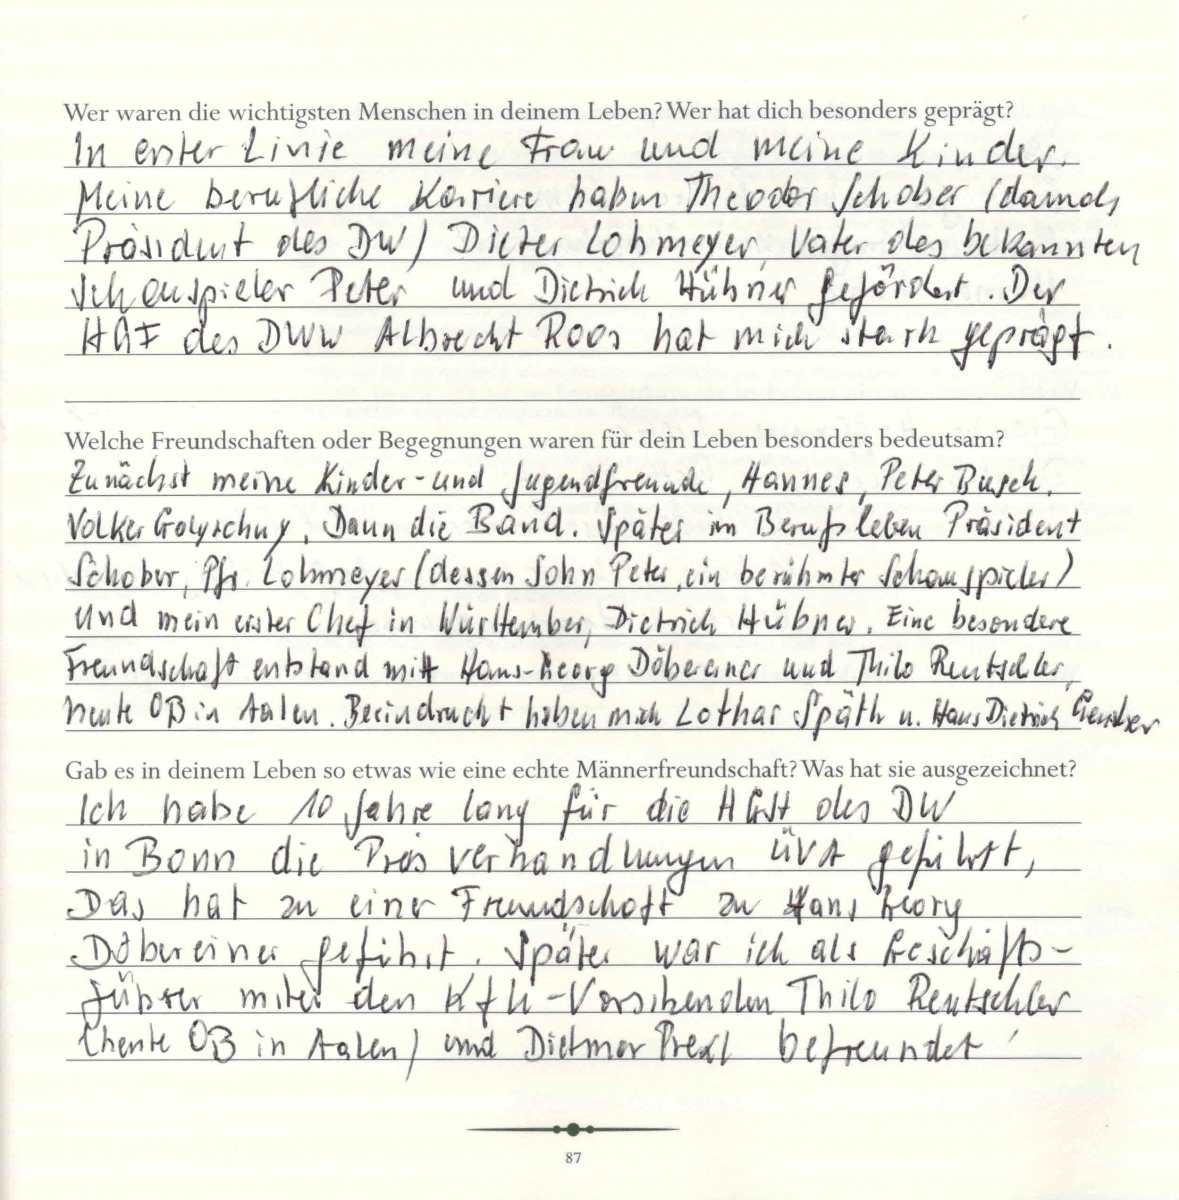 Wer waren die wichtigsten Menschen in deinem Leben? Wer hat dich besonders geprägt?
In erster Linie meine Frau und meine Kinder.
Meine berufliche Karriere haben Theodor Schober (damals
Präsident des DW) Dieter Lohmeyer, Vater des bekannten
Schauspieler Peter und Dietrich Hübner gefördert. Der
HGF des DWW Albrecht Roos hat mich stark geprägt.
Welche Freundschaften oder Begegnungen waren für dein Leben besonders bedeutsam?
Zunächst meine Kinder- und Jugendfreunde, Hannes, Peter Busch,
Volker Dann die Band. Später im Berufsleben Präsident
Schober, Pfr. Lohmeyer (dessen Sohn Peter, ein berühmter Schauspieler)
Und mein erster Chef in Württember, Dietrich Hübner. Eine besondere
Freundschaft entstand mitt Hans-Georg Döbereiner und Thilo Rentschler,
heute OB in Aalen. Beeindruckt haben mich Lothar Späth u. Hans Dietrich Genscher
Gab es in deinem Leben so etwas wie eine echte Männerfreundschaft? Was hat sie ausgezeichnet?
Ich habe 10 Jahre lang für die HGSt des DW
in Bonn die verhandlungen ÜVA geführt,
Das hat zu einer Freundschaft zu Hans Georg
Döbereiner geführt. Später war ich als Geschäfts-
führer mit den KfH-Vorsitzenden Thilo Rentschler
(heute OB in Aalen) und Dietmar befreundet
87